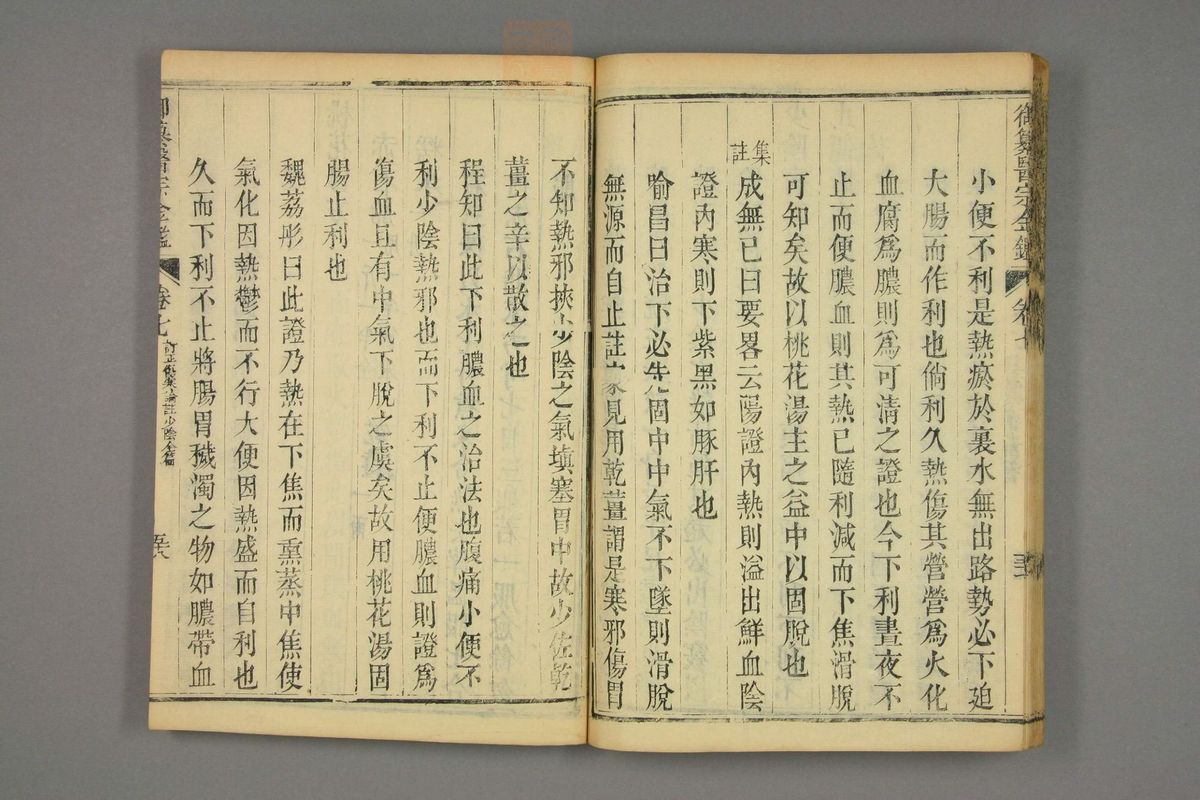 御纂醫宗金鑑 卷七
小便不利是熱瘀於裏水無出路勢必下迫
大腸而作利也倘利久熱傷其營營爲火化
血腐爲膿則爲可清之證也今下利晝夜不
止而便膿血則其熱已隨利減而下焦滑脫
可知矣故以桃花湯主之益中以固脫也
集註
成無已曰要畧云陽證內熱則溢出鮮血陰
證內寒則下紫黑如豚肝也
喻昌曰治下必先固中中氣不下墜則滑脫
無源而自止註家見用乾薑謂是寒邪傷胃
不知熱邪挾少陰之氣塡塞胃中故少佐乾
薑之辛以散之也
程知曰此下利膿血之治法也腹痛小便不
利少陰熱邪也而下利不止便膿血則證爲
傷血且有中氣下脫之虞矣故用桃花湯固
腸止利也
魏荔彤曰此證乃熱在下焦而熏蒸中焦使
氣化因熱鬱而不行大便因熱盛而自利也
久而下利不止將腸胃穢濁之物如膿帶血
御纂醫宗金鑑 卷七 訂正傷寒論註少陰全篇